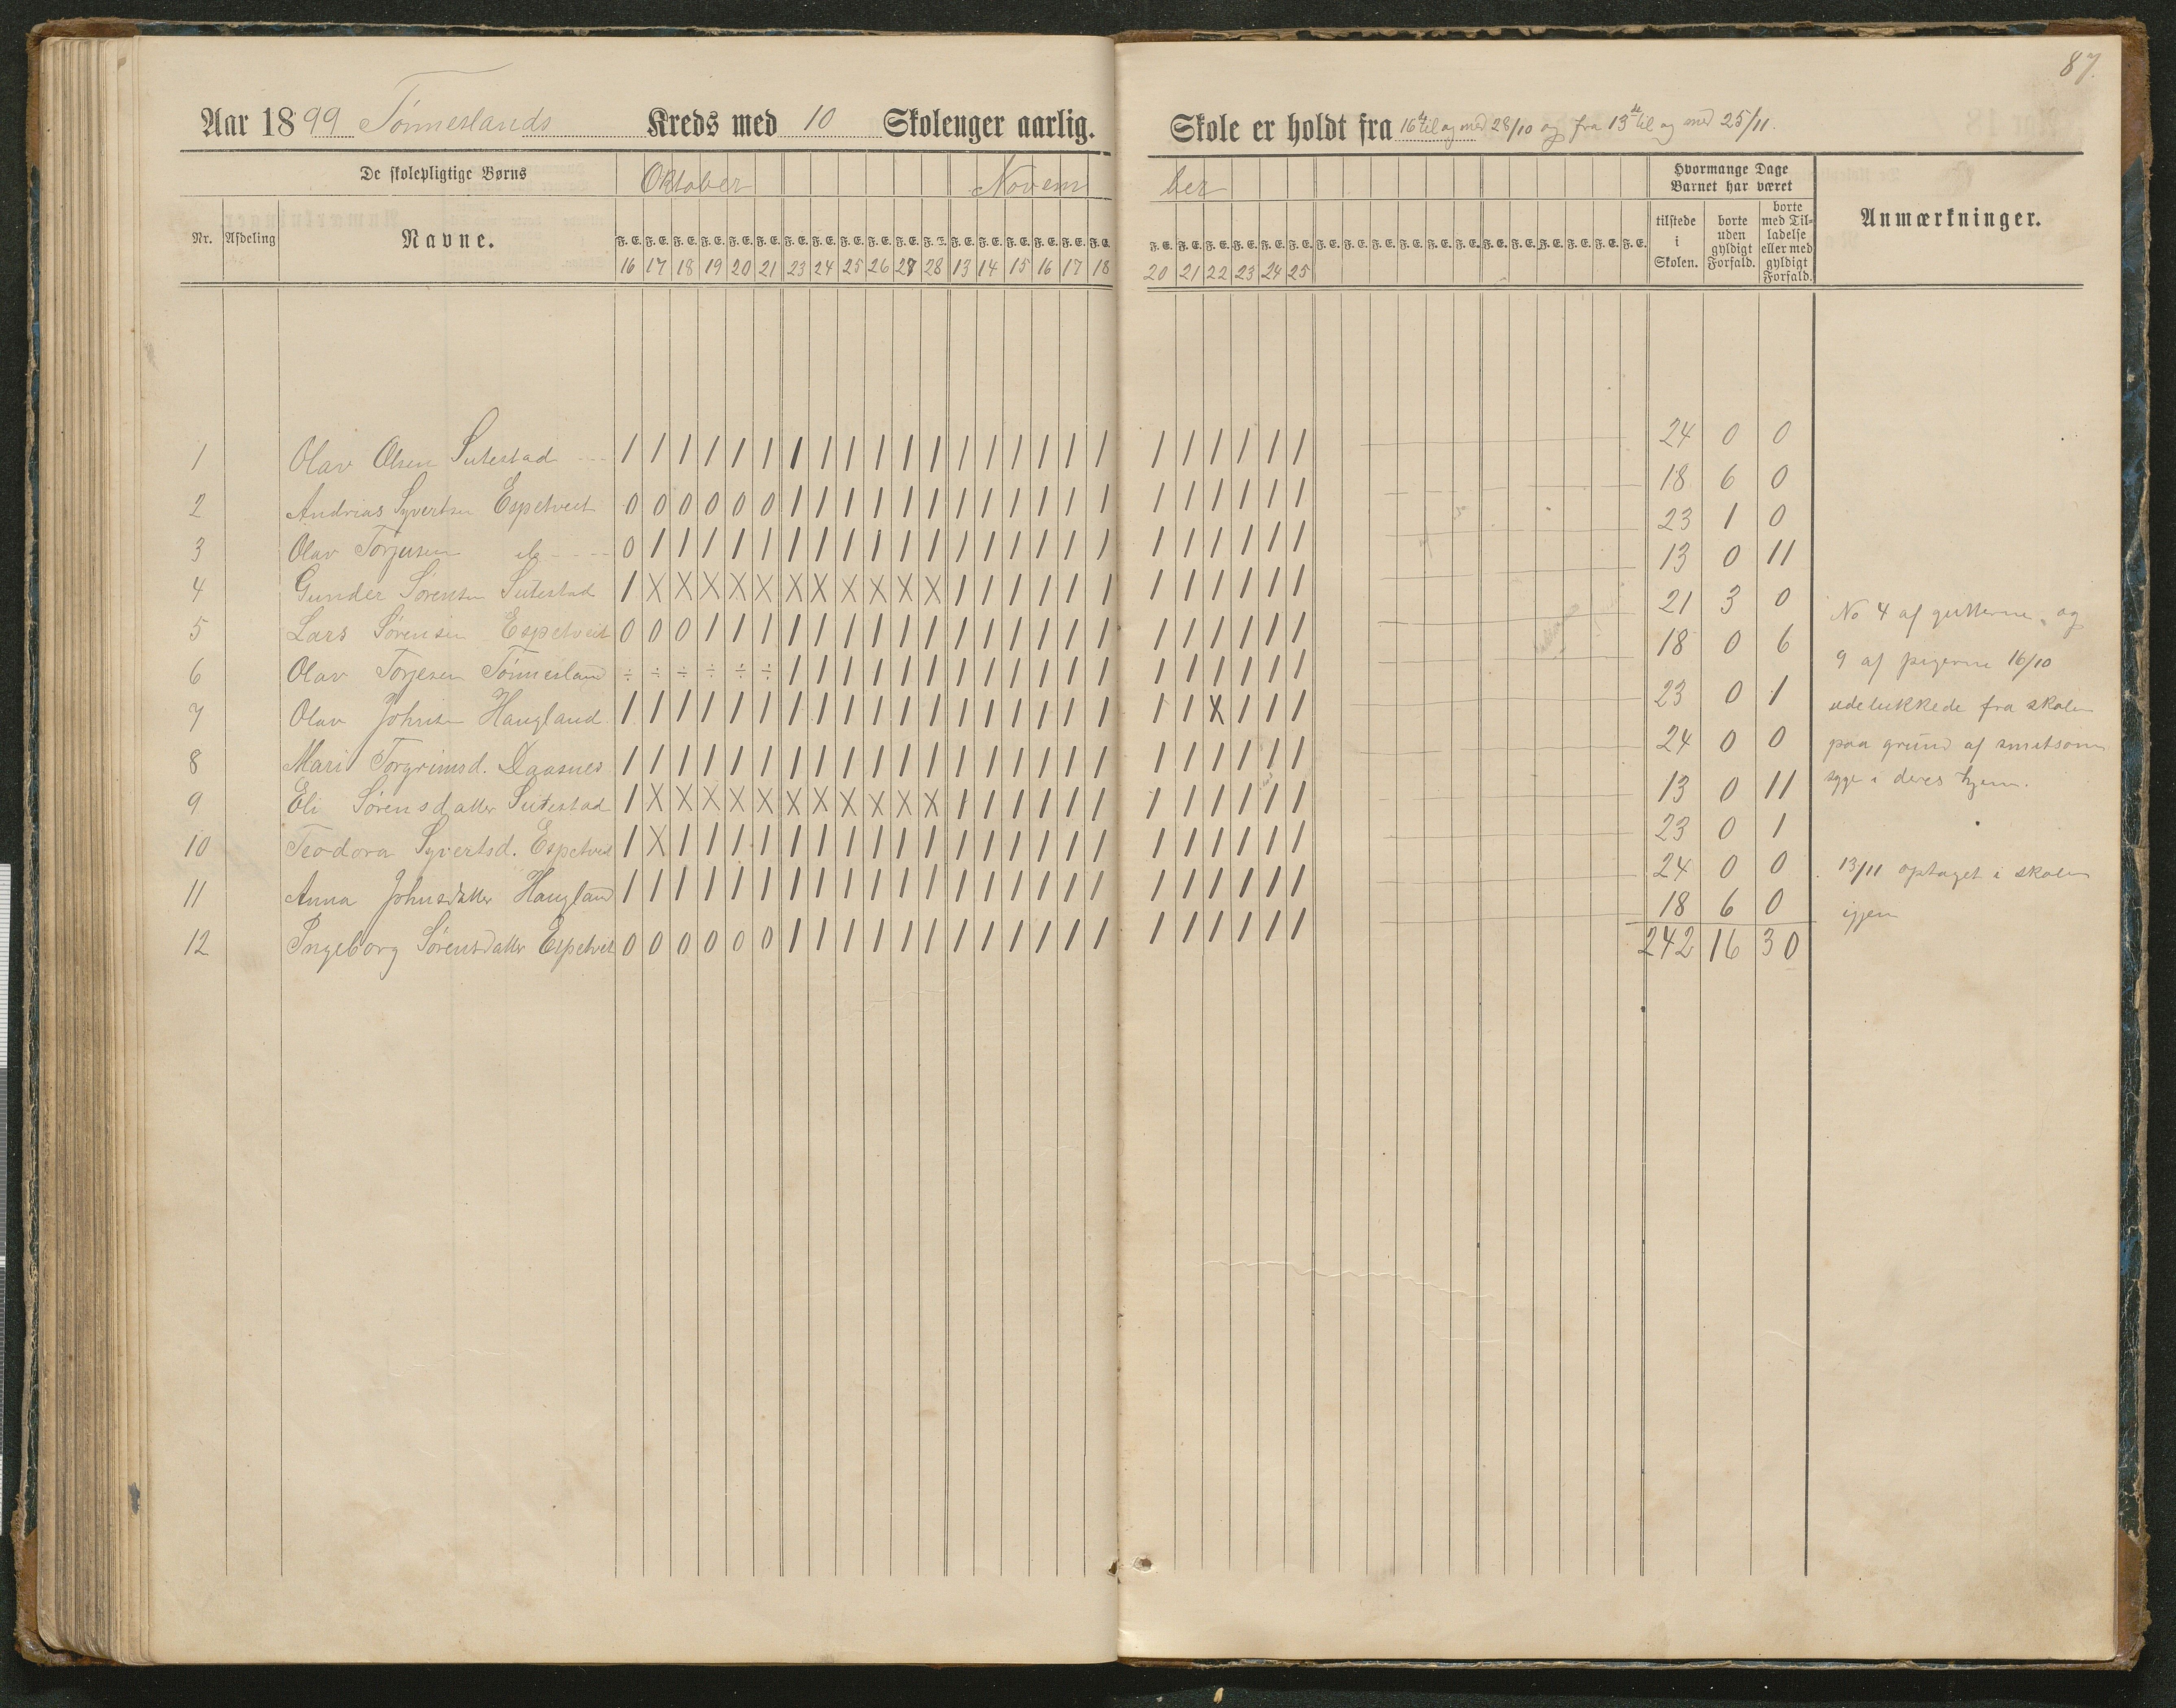 87.
Aar 1899 Tönneslands Kreds med 10 Skoleuger aarlig. Skole er holdt fra 16de til og med 28/10 og fra 13de til og med 25/11.
De skolepligtige Børns Oktober Novem ber Hvormange Dage Barnet har været
Nr. Afdeling Navne. F. E. F. E. F. E. F. E. F. E. F. E. F. E. F. E. F. E. F. E. F. E. F. E. F. E. F. E. F. E. F. E. F. E. F. E. tilstede i Skolen. borte uden gyldigt Forfald. borte med Tilladelse eller med gyldigt Forfald. Anmærkninger.
16 17 18 19 20 21 23 24 25 26 27 28 13 14 15 16 17 18 20 21 22 23 24 25
1 Olav Olsen Sutestad / / / / / / / / / / / / / / / / / / / / / / / / 24 0 0
2 Andrias Syvertsen Espetveit 0 0 0 0 0 0 / / / / / / / / / / / / / / / / / / 18 6 0
3 Olav Torjusen 0 / / / / / / / / / / / / / / / / / / / / / / / 23 1 0
4 Gunder Sørensen Sutestad / X X X X X X X X X X X / / / / / / / / / / / / 13 0 11
5 Lars Sørensen Espetveit 0 0 0 / / / / / / / / / / / / / / / / / / / / / 21 3 0
6 Olav Torjesen Tönnesland ÷ ÷ ÷ ÷ ÷ ÷ / / / / / / / / / / / / / / / / / / 18 0 6
7 Olav Johnsen Haugland / / / / / / / / / / / / / / / / / / / / X / / / 23 0 1
8 Mari Torgrimsd. Daasnes / / / / / / / / / / / / / / / / / / / / / / / / 24 0 0
9 Eli Sørensdatter Sutestad / X X X X X X X X X X X / / / / / / / / / / / / 13 0 11
10 Teodora Syvertsd. Espetveit / X / / / / / / / / / / / / / / / / / / / / / / 23 0 1
11 Anna Johnsdatter Haugland / / / / / / / / / / / / / / / / / / / / / / / / 24 0 0
12 Ingeborg Sørensdatter Espetveit 0 0 0 0 0 0 / / / / / / / / / / / / / / / / / / 18 6 0
242 16 30
No 4 af gutterne og
9 af pigerne 16/10
udelukkede fra skolen
paa grund af smitsom
syge i deres hjem.
13/11 optaget i skolen
igjen